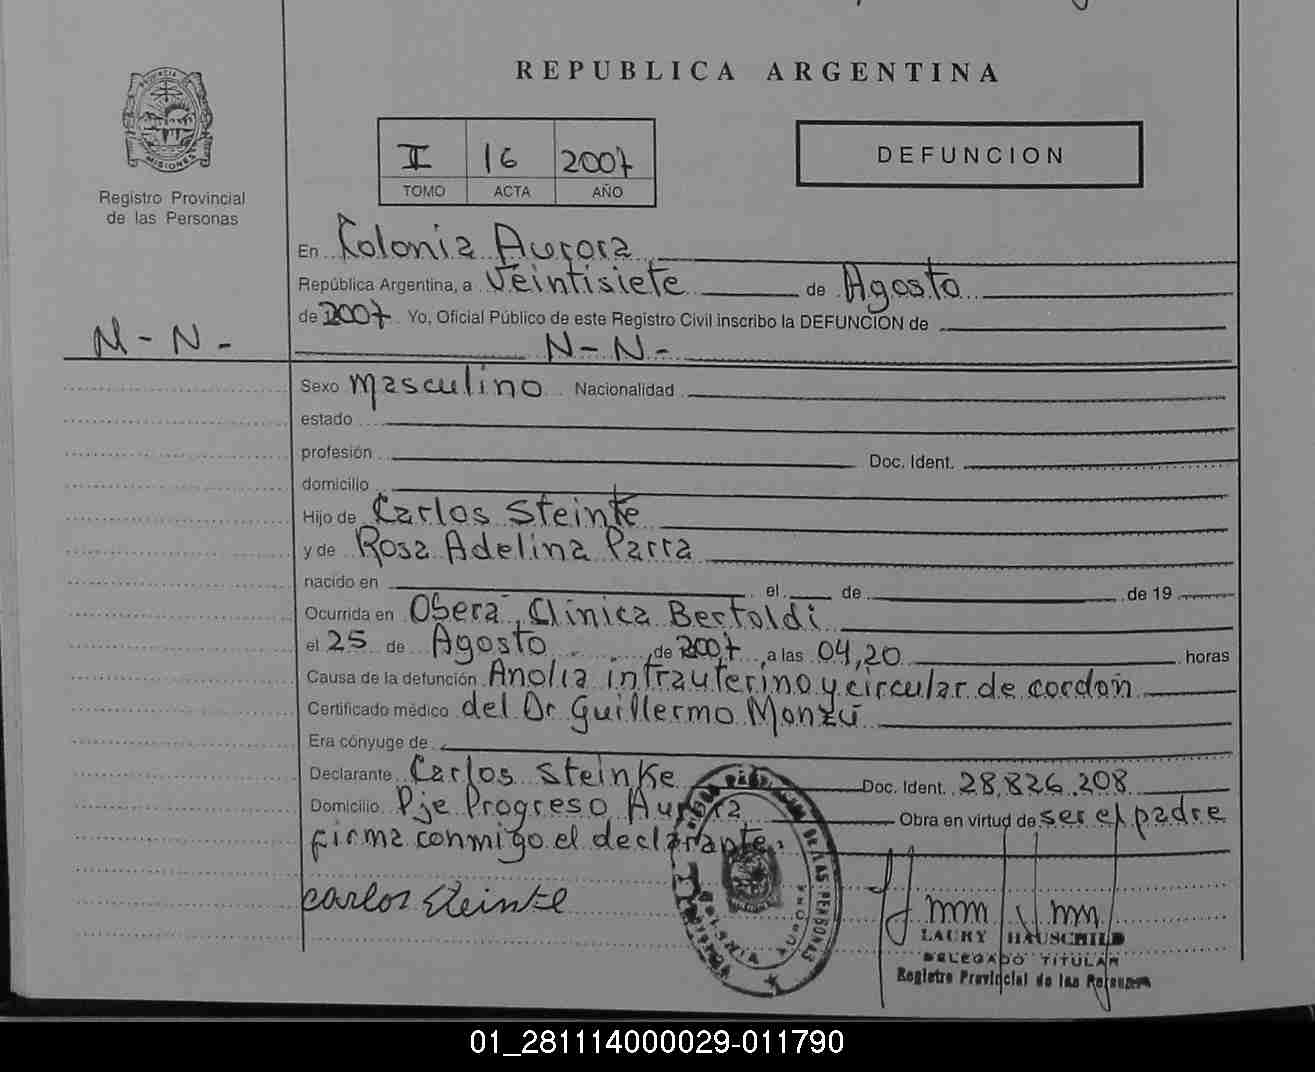 REPUBLICA ARGENTINA
PROVINCIA DE
MISIONES
Registro Provincial
de las Personas
II 16 2007
TOMO ACTA AÑO
DEFUNCION
En Kolonia Aurora
República Argentina, a Veintisiete de Agosto
de 2007 Yo, Oficial Público de este Registro Civil inscribo la DEFUNCION de
N - N -
N - N -
Sexo masculino Nacionalidad
estado
profesión Doc. Ident.
domicilio
Hijo de Carlos Steinke
y de Rosa Adelina Parra
nacido en el de de 19
Ocurrida en Oberá, Clínica Bertoldi
el 25 de Agosto de 2007, a las 04,20 horas
Causa de la defunción Anoxia intrauterino y circular de cordón
Certificado médico del Dr Guillermo Monzú
Era cónyuge de
Declarante Carlos Steinke Doc. Ident. 28.826.208
Domicilio Pje Progreso Aurora Obra en virtud de ser el padre
firma conmigo el declarante.
Carlos Steinke
LAURY HAUSCHILD
DELEGADO TITULAR
Registro Provincial de las Personas
01_281114000029-011790